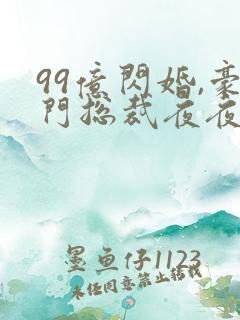 99億閃婚,豪
門總裁夜夜
墨魚仔1123
未任同意禁止結找